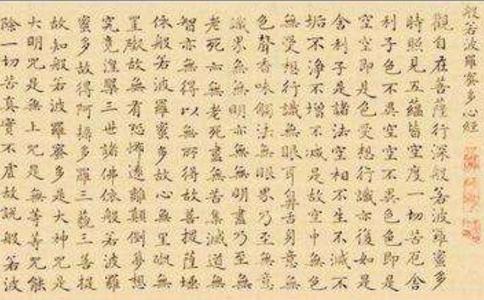 般若波羅蜜多心經
觀自在菩薩行深般若波羅蜜多
時照見五蘊皆空度一切苦厄舍
利子色不異空空不異色色即是
空空即是色受想行識亦復如是
舍利子是諸法空相不生不滅不
垢不淨不增不減是故空中無色
無受想行識無眼耳鼻舌身意無
色聲香味觸法無眼界乃至無意
識界無無明亦無無明盡乃至無
老死亦無老死盡無苦集滅道無
智亦無得以無所得故菩提薩埵
依般若波羅蜜多故心無罣礙無
罣礙故無有恐怖遠離顛倒夢想
究竟涅槃三世諸佛依般若波羅
蜜多故得阿耨多羅三藐三菩提
故知般若波羅蜜多是大神咒是
大明咒是無上咒是無等等咒能
除一切苦真實不虛故說般若波